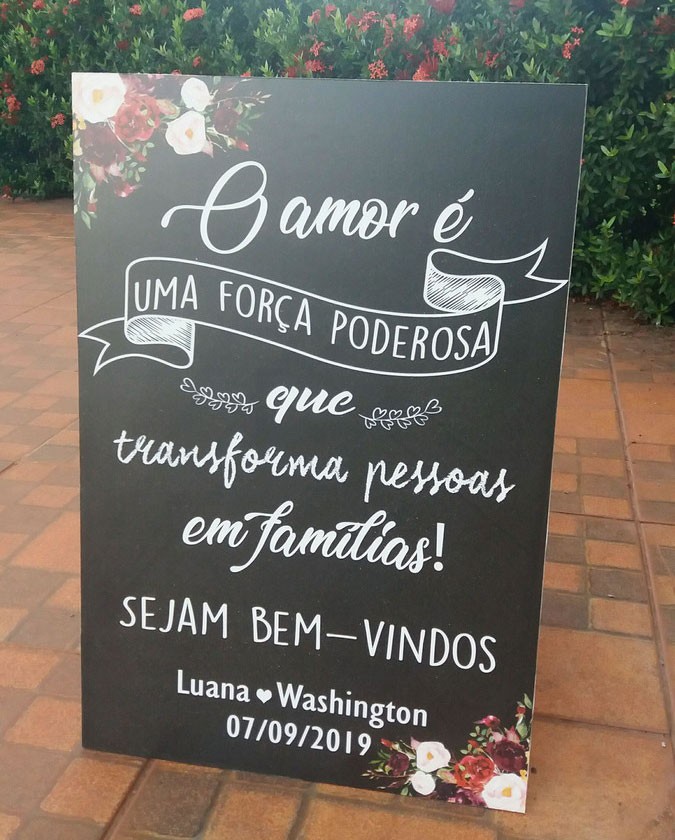 O amor é
UMA FORÇA PODEROSA
que
transforma pessoas
em famílias!
SEJAM BEM-VINDOS
Luana ♥ Washington
07/09/2019